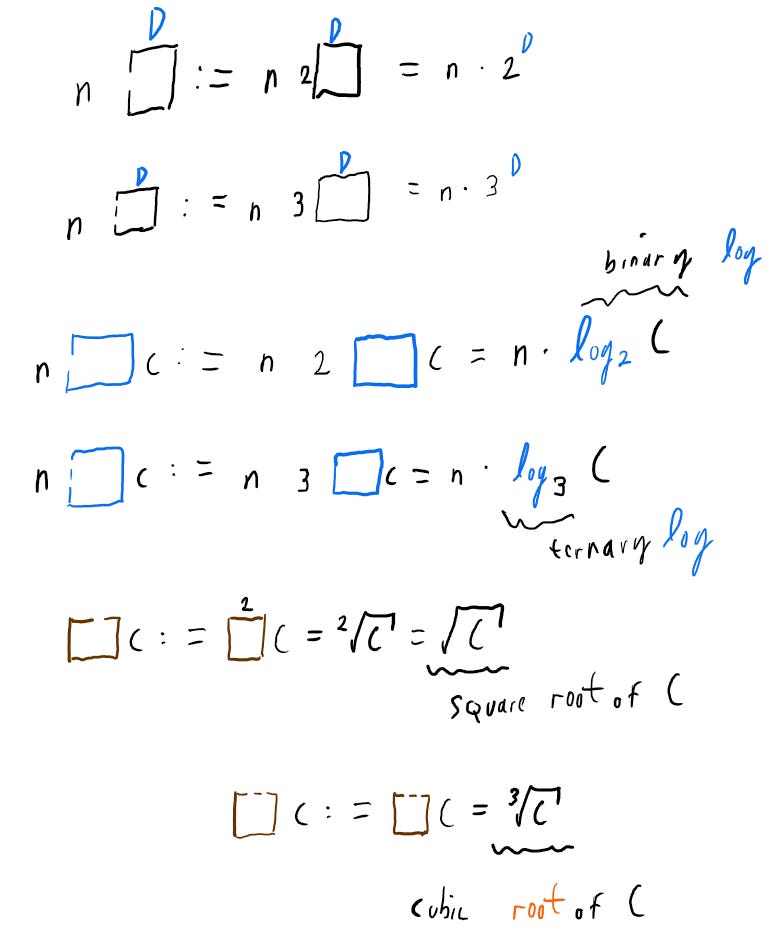 n □^D := n 2□^D = n · 2^D
n □^D := n 3□^D = n · 3^D
binary log
n □ C := n 2 □ C = n · log₂ C
n □ C := n 3 □ C = n · log₃ C
ternary log
□ C := ²□ C = ²√C = √C
square root of C
□ C := □ C = ³√C
cubic root of C